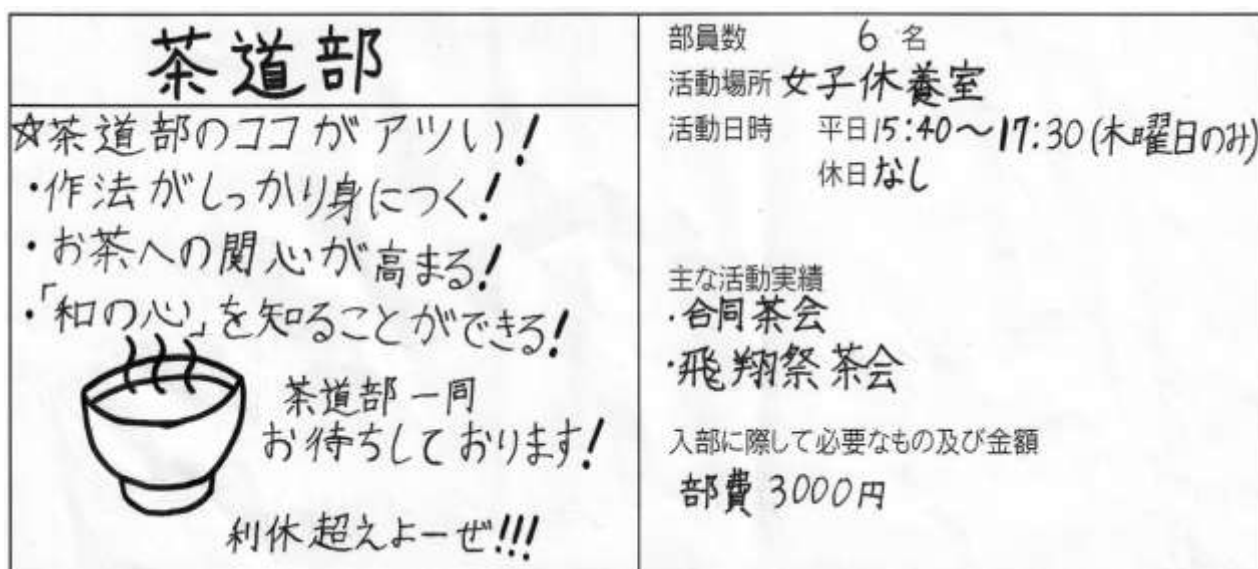 茶道部
☆茶道部のココがアツい!
・作法がしっかり身につく!
・お茶への関心が高まる!
・「和の心」を知ることができる!
茶道部一同
お待ちしております!
利休超えよーぜ!!!
部員数 6 名
活動場所 女子休養室
活動日時 平日 15:40〜17:30(木曜日のみ)
休日 なし
主な活動実績
・合同茶会
・飛翔祭茶会
入部に際して必要なもの及び金額
部費 3000円